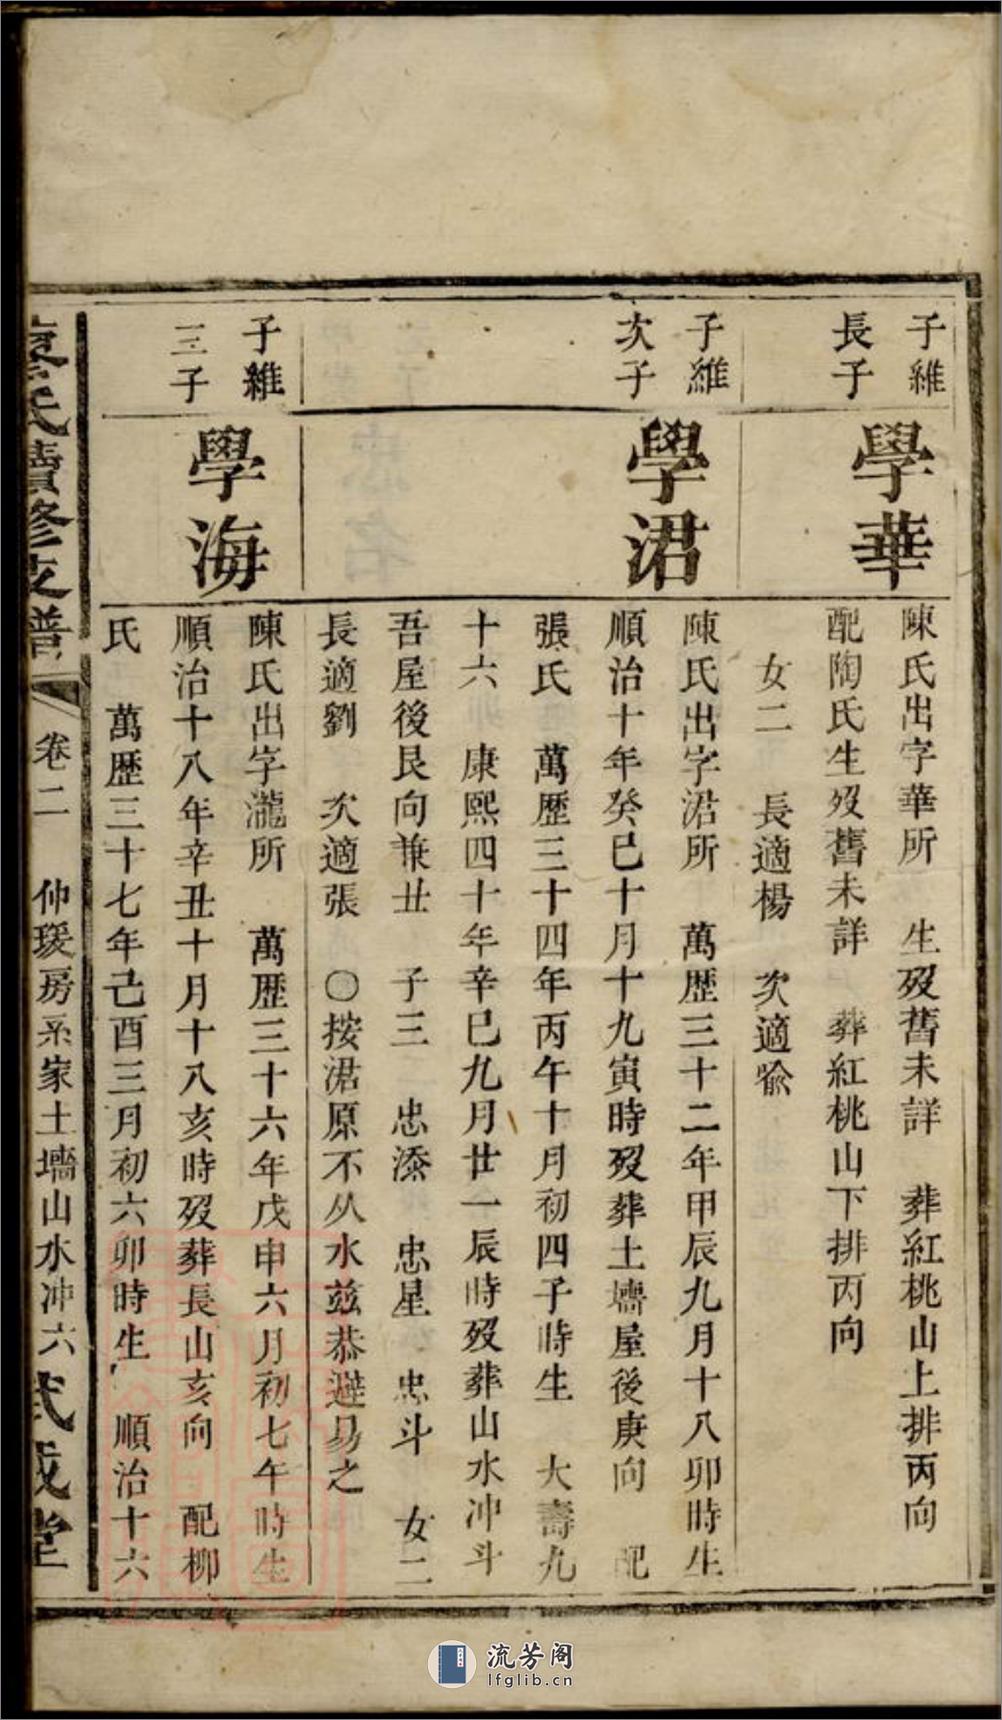 子維
長子
學華
陳氏出字華所　生歿舊未詳　葬紅桃山上排丙向
配陶氏生歿舊未詳　葬紅桃山下排丙向
女二　長適楊　次適喩
子維
次子
學涒
陳氏出字涒所　萬歷三十二年甲辰九月十八卯時生
順治十年癸巳十月十九寅時歿葬土墻屋後庚向　配
張氏　萬歷三十四年丙午十月初四子時生　大壽九
十六　康熙四十年辛巳九月廿一辰時歿葬山水冲斗
吾屋後艮向兼丑　子三　忠添　忠星　忠斗　女二
長適劉　次適張　〇按涒原不从水兹恭避易之
子維
三子
學海
陳氏出字瀧所　萬歷三十六年戊申六月初七午時生
順治十八年辛丑十月十八亥時歿葬長山亥向　配柳
氏　萬歷三十七年己酉三月初六卯時生　順治十六
氏續修支譜　卷二　仲瑗房系家土墻山水冲六　式成堂
流芳阁
lfglib.cn